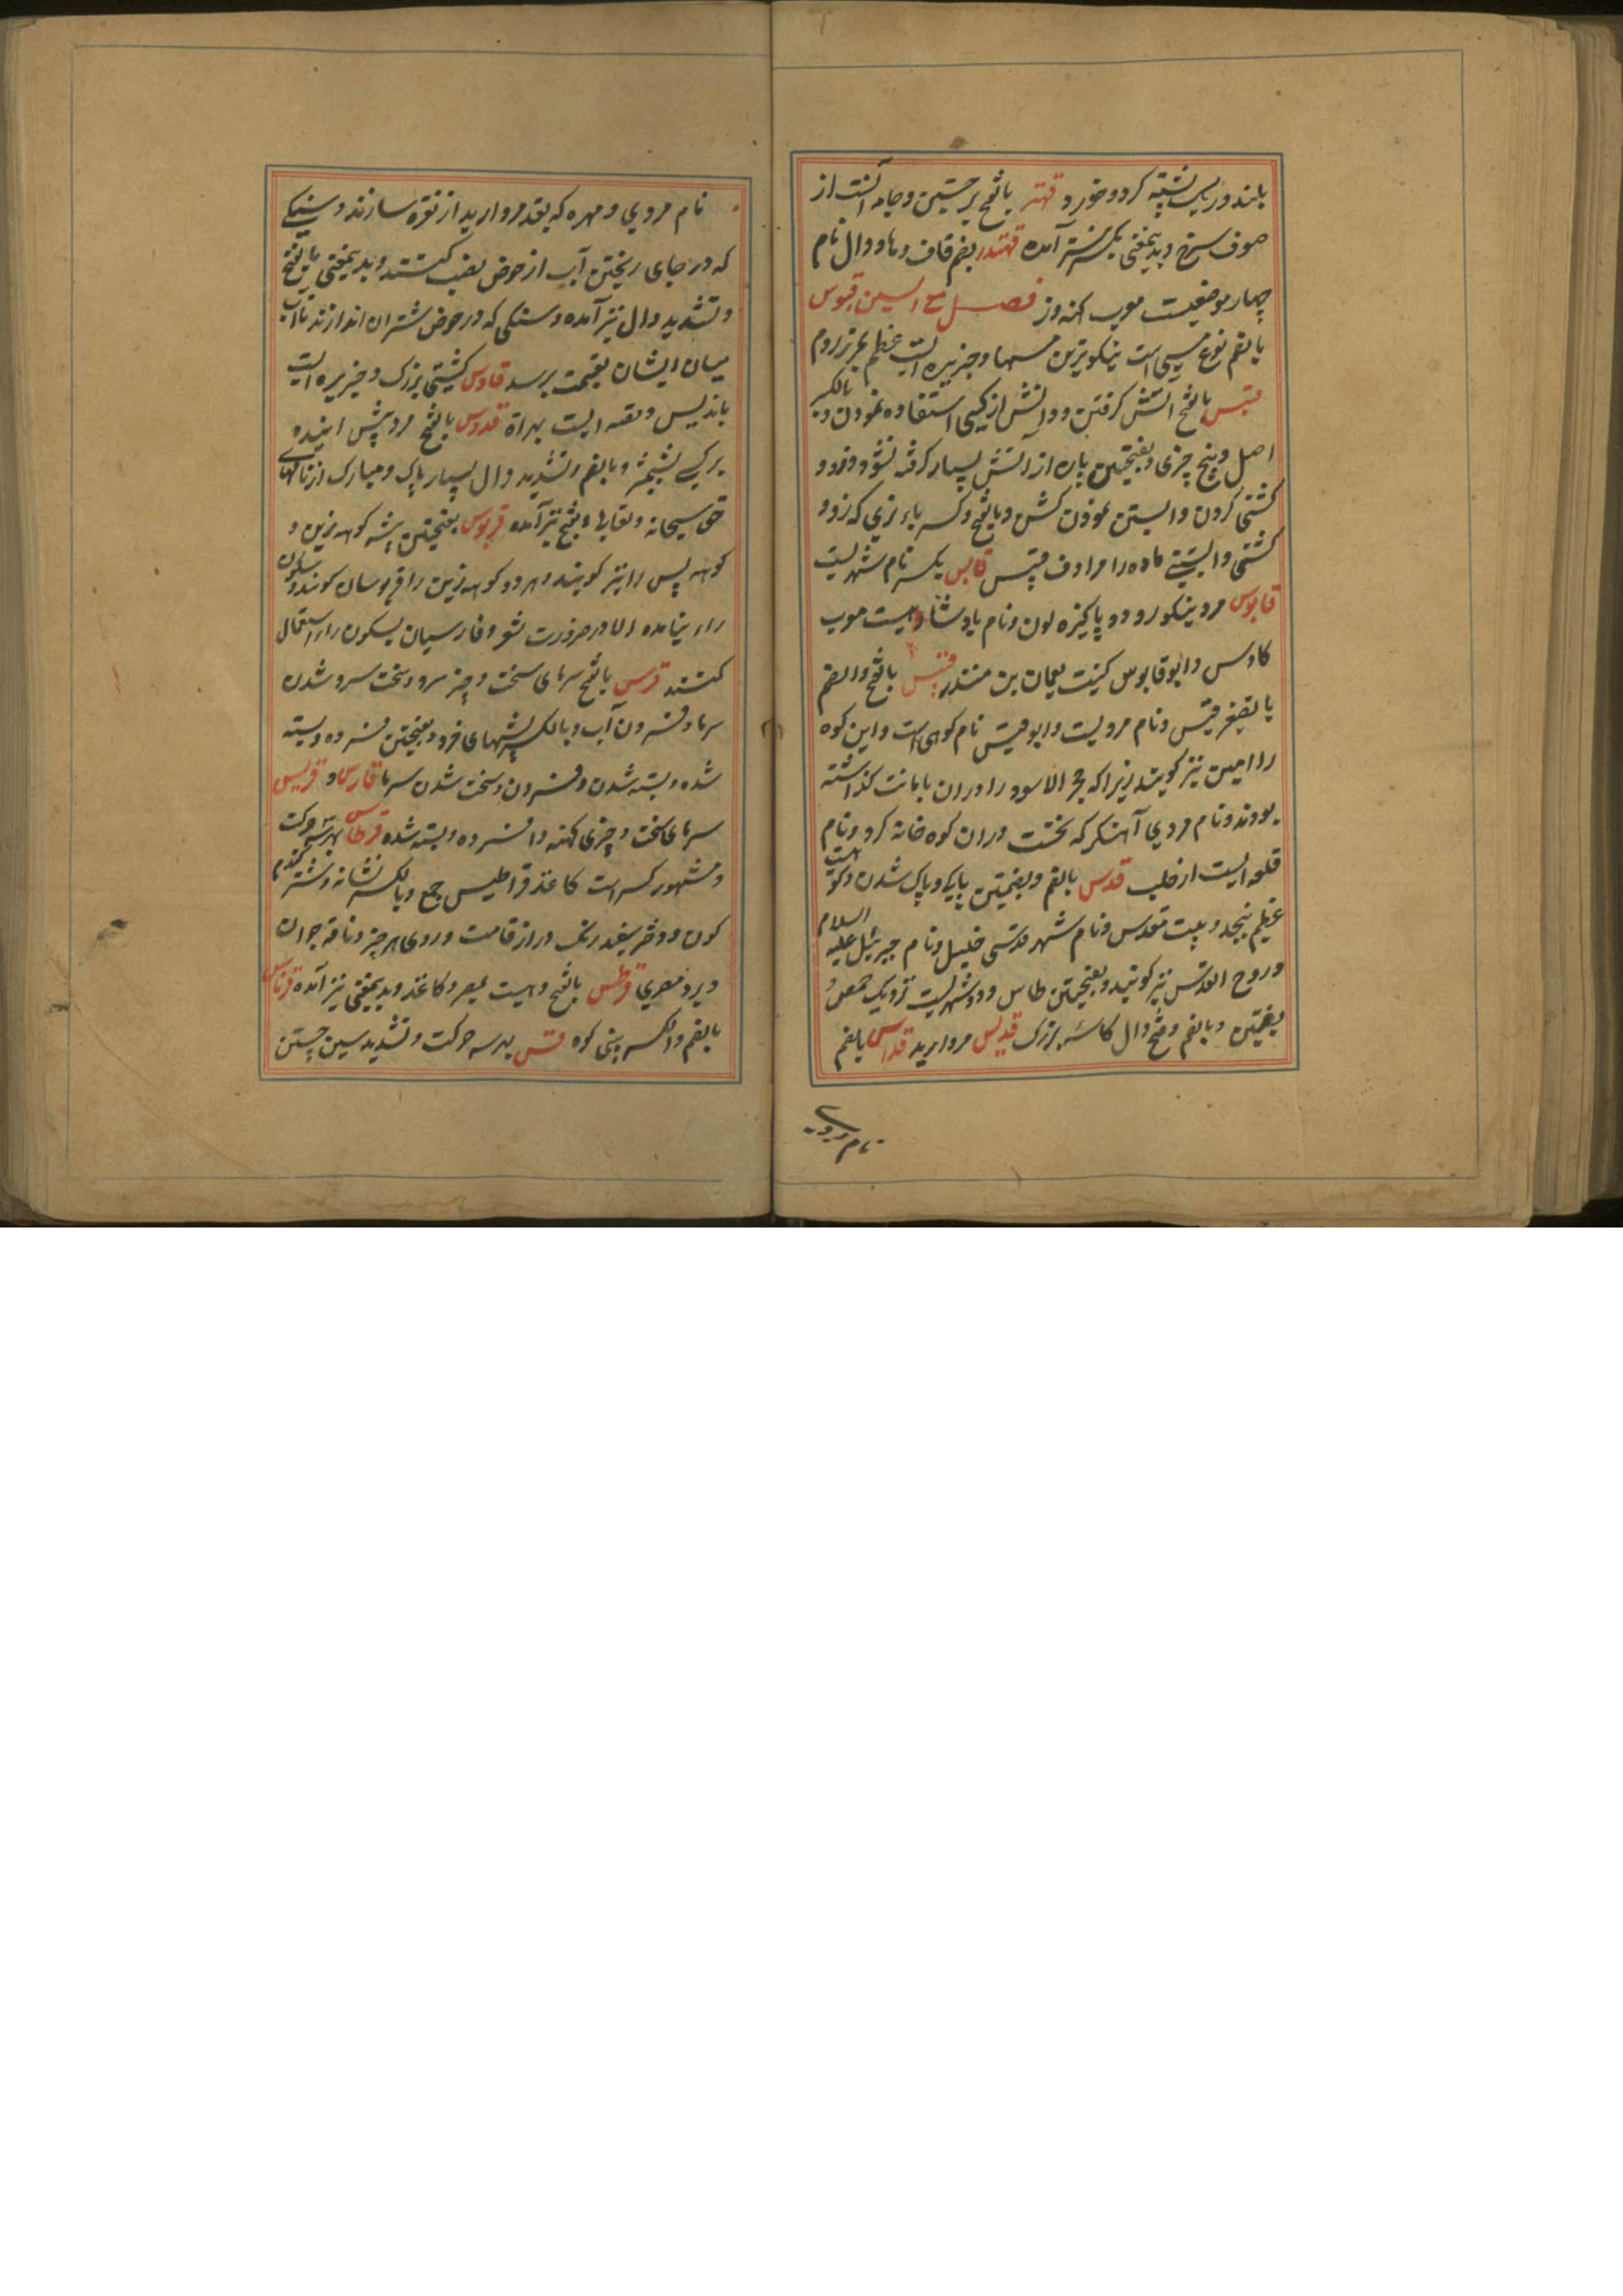 باشد و ریگ پشته گرد و خورد قهقر بالفتح برجستن و جامه ایست از
صوف سرخ و بدیمعنی بکسر نیز آمده قهندز بضم قاف و ها و دال نام
چهار موضعیست معرب کهندز فصل مع السین قبرس
بالضم نوع مسی است نیکوترین مسها و جزیره ایست عظیم بحر روم
قبس بالفتح آتش گرفتن و دانش از کسی استفاده نمودن و بالکسر
اصل و بیخ چیزی و بفتحتین پاره از آتش بسیار گرفته نشود و زود
گشنی کردن و آبستن نمودن گشن و بالفتح و کسر باء نری که زود
گشنی و آبستنی ماده را مرادف قبیس قابس بکسر نام شهریست
قابوس مرد نیکو رو و پاکیزه لون و نام پادشاهیست معرب
کاوس و ابو قابوس کنیت نعمان بن منذر قبیس بالفتح و الضم
بالتصغیر قبس و نام مردیست و ابو قبیس نام کوهی است و این کوه
را امین نیز گویند زیرا که حجر الاسود را دران بامانت گذاشته
بودند و نام مردی آهنگر که نخست دران کوه خانه کرد و نام
قلعه ایست از حلب قدس بالضم و بضمتین پاکی و پاک شدن و کوهیست
عظیم بنجد و بیت مقدس و نام شهر قدسی خلیل و نام جبرئیل علیه السلام
و روح القدس نیز گویند و بفتحتین طاس و شهریست نزدیک حمص و
بضمتین و بالضم و فتح دال کاسه بزرگ قدیس مروارید قداس بالضم
نام مردی
نام مردی و مهره که بقد مروارید از نقره سازند و سنگی
که در جای ریختن آب از حوض نصب کنند و بدیمعنی بالفتح
و تشدید دال نیز آمده و سنگی که در حوض شتران اندازند تا آب
میان ایشان بقیمت برسد قادس کشتی بزرگ و جزیره ایست
باندلس و بقعه ایست بهراة قدوس بالفتح مرد پیش اینده
برکسی بشمشیر و بالضم و تشدید دال بسیار پاک و مبارک از نامهای
حق سبحانه و تعالی و بفتح نیز آمده قربوس بفتحتین پیشه کوهه زین و
کوهه پس را نیز گویند و هر دو کوهه زین را قربوسان گویند و سکون
راء نیامده الا در ضرورت شعر و فارسیان بسکون راء استعمال
کنند قرس بالفتح سرمای سخت و چیز سرد و سخت سرد شدن
سرما و فسردن آب و بالکسر پشهای خرد و بفتحتین فسرده و بسته
شده و بسته شدن و فسردن و سخت شدن سرما قارس و قریس
سرمای سخت و چیزی کهنه و افسرده و بسته شده قرطاس بهر سه حرکت
و مشهور کسر است کاغذ قراطیس جمع و بالکسر نشانه و شتر گندم
گون و دختر سفید رنگ دراز قامت و روی هر چیز و ناقه جوان
و برد مصری قرطس بالفتح دهیست بمصر و کاغذ و بدیمعنی نیز آمده قرناس
بالضم و الکسر بینی کوه قس بهر سه حرکت و تشدید سین جستن